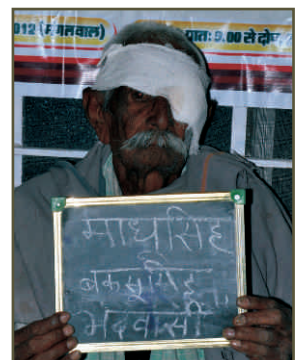 012 (मंगलवार) प्रातः 9.00 से दोप
माधुसिंह
बकसूसिंह
भदवासी